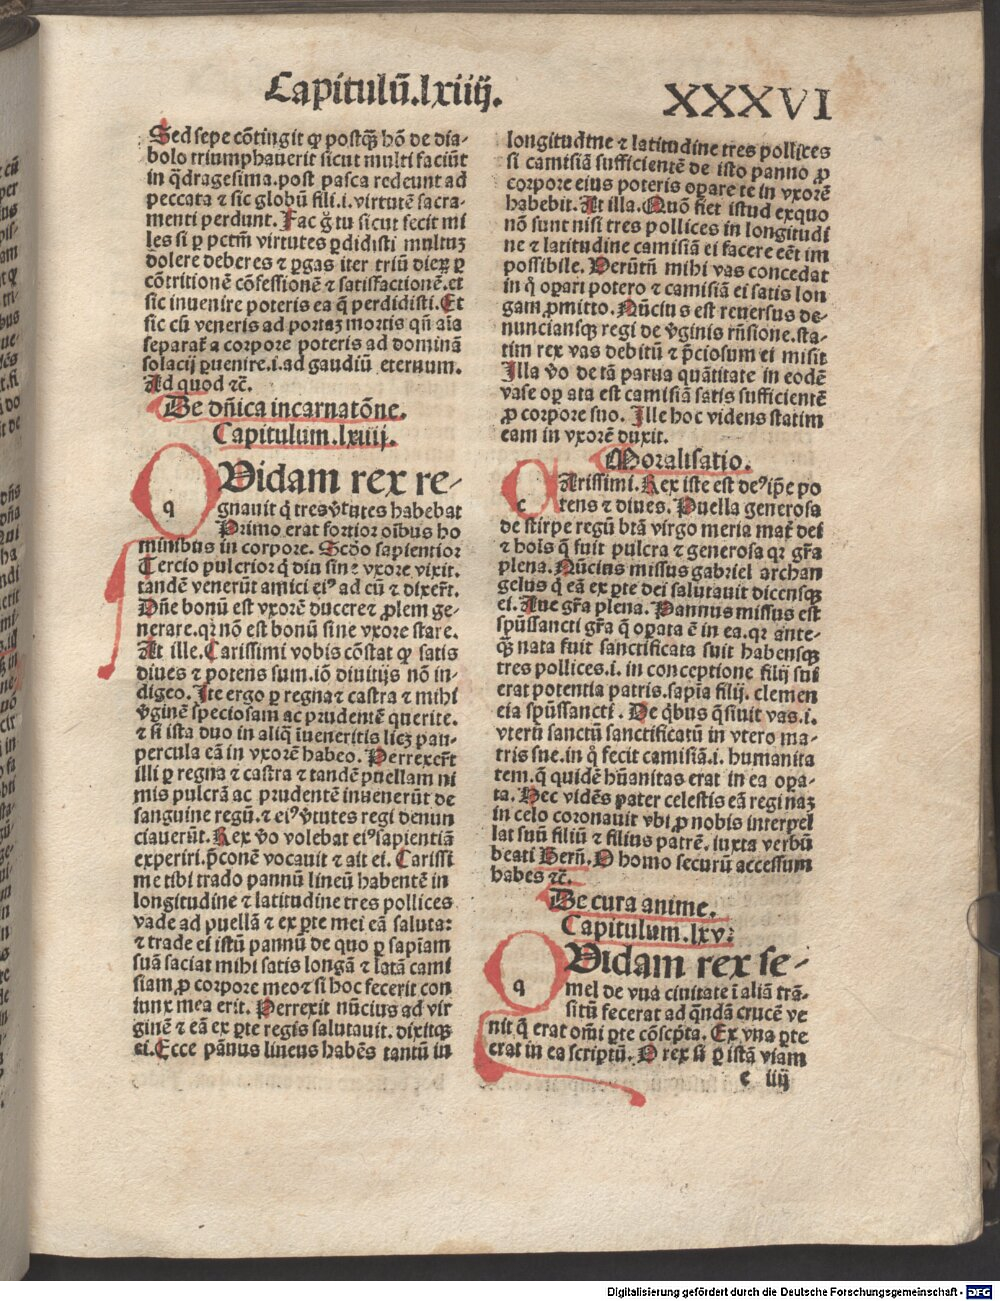 Capitulū.lxiiij.
XXXVI
Sed sepe cōtingit qꝙ postꝗ̄ hō de dia-
bolo triumphauerit sicut multi faciūt
in q̄dragesima.post pasca redeunt ad
peccata ⁊ sic globū fili.i.virtutē sacra-
menti perdunt. Fac g̃ tu sicut fecit mi
les si ꝑ pctm̄ virtutes ꝑdidisti multuꝫ
dolere deberes ⁊ ꝑgas iter triū dieꝝ ꝑ
cōtritionē cōfessionē ⁊ satisfactionē.et
sic inuenire poteris ea q̄ perdidisti. Et
sic cū veneris ad portaꝫ mortis qn̄ aīa
separat̄ a corpore poteris ad dominā
solacij ꝑuenire.i.ad gaudiū eternum.
Ad quod ⁊c̄.
De dn̄ica incarnatōne.
Capitulum.lxiiij.
QVidam rex re-
q
gnauit q̇ tres v̄tutes habebat
Primo erat fortior oībus ho
minibus in corpore. Scd̄o sapientior
Tercio pulcrior q̇ diu sine vxore vixit.
tandē venerūt amici eiꝰ ad eū ⁊ dixer̄t.
Dn̄e bonū est vxorē ducere ⁊ ꝓlem ge-
nerare.qꝛ nō est bonū sine vxore stare.
At ille. Carissimi vobis cōstat qꝙ satis
diues ⁊ potens sum.iō diuitijs nō in-
digeo. Ite ergo ꝑ regna ⁊ castra ⁊ mihi
v̄ginē speciosam ac prudentē querite.
⁊ si ista duo in aliq̄ īueneritis licꝫ pau-
percula eā in vxorē habeo. Perrexer̄t
illi ꝑ regna ⁊ castra ⁊ tandē puellam ni
mis pulcrā ac prudentē inuenerūt de
sanguine regū.⁊ eiꝰ v̄tutes regi denun
ciauerūt. Rex v̄o volebat eiꝰ sapientiā
experiri.p̄conē vocauit ⁊ ait ei. Carissi
me tibi trado pannū lineū habentē in
longitudine ⁊ latitudine tres pollices
vade ad puellā ⁊ ex ꝑte mei eā saluta:
⁊ trade ei istū pannū de quo ꝑ sapīam
suā faciat mihi satis longā ⁊ latā cami
siam ꝓ corpore meo ⁊ si hoc fecerit con
iunx mea erit. Perrexit nūcius ad vir
ginē ⁊ eā ex ꝑte regis salutauit. dixitqꝫ
ei. Ecce pānus lineus habēs tantū in
longitudīne ⁊ latitudine tres pollices
si camisiā sufficientē de isto panno ꝓ
corpore eius poteris oꝑare te in vxorē
habebit. At illa. Quō fiet istud exquo
nō sunt nisi tres pollices in longitudi
ne ⁊ latitudine camisiā ei facere eēt im
possibile. Verūtn̄ mihi vas concedat
in q̊ oꝑari potero ⁊ camisiā ei satis lon
gam ꝓmitto. Nūcius est reuersus de-
nunciansqꝫ regi de v̄ginis rn̄sione.sta-
tim rex vas debitū ⁊ p̄ciosum ei misit
Illa v̄o de tā parua quātitate in eodē
vase oꝑata est camisiā satis sufficientē
ꝓ corpore suo. Ille hoc videns statim
eam in vxorē duxit.
Moralisatio.
CArissimi. Rex iste est deꝰ ip̄e po
c
tens ⁊ diues. Puella generosa
de stirpe regū btā virgo meria mat̄ dei
⁊ hoīs q̄ fuit pulcra ⁊ generosa qꝛ gr̄a
plena. Nūcius missus gabriel archan
gelus q̇ eā ex ꝑte dei salutauit dicensqꝫ
ei. Aue gr̄a plena. Pannus missus est
sp̄ūssancti gr̄a q̄ oꝑata ē in ea.qꝛ ante-
ꝗ̄ nata fuit sanctificata fuit habensqꝫ
tres pollices.i. in conceptione filij sui
erat potentia patris.sapīa filij. clemen
cia sp̄ūssancti. De q̇bus q̄siuit vas.i.
vterū sanctū sanctificatū in vtero ma-
tris sue.in q̊ fecit camisiā.i. humanita
tem.q̄ quidē hūanitas erat in ea oꝑa-
ta. Hec vidēs pater celestis eā reginaꝫ
in celo coronauit vbi ꝓ nobis interpel
lat suū filiū ⁊ filius patrē. iuxta verbū
beati Bern̄. O homo securū accessum
habes ⁊c̄.
De cura anime.
Capitulum.lxv.
QVidam rex se-
q
mel de vna ciuitate ī aliā trā-
sitū fecerat ad q̄ndā crucē ve
nit q̄ erat om̄i ꝑte cōscp̄ta. Ex vna ꝑte
erat in ea scriptū. O rex si ꝑ istā viam
e iiij
Digitalisierung gefördert durch die Deutsche Forschungsgemeinschaft - DFG